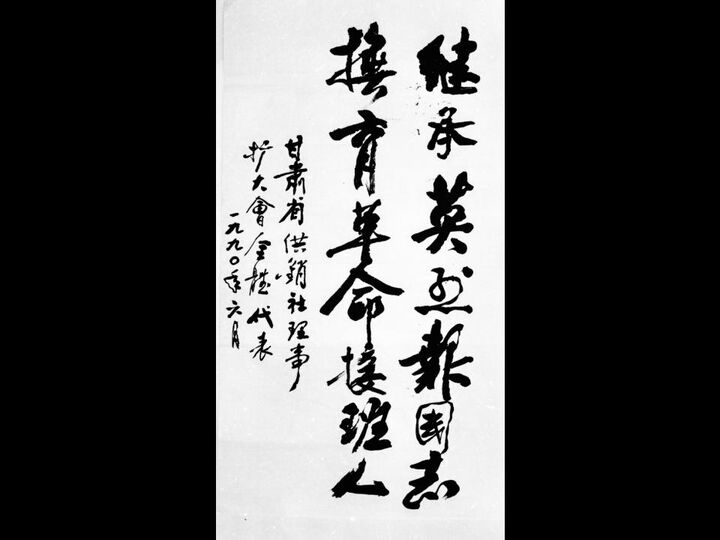 继承英烈報國志
撫育革命接班人
甘肃省供銷社理事
扩大會全體代表
一九九〇年六月